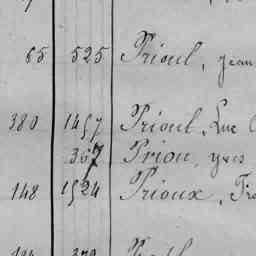 65 525 Prioul, Jean
380 1457 Prioul, Luc
367 Priou, Yves
148 1524 Prioux,